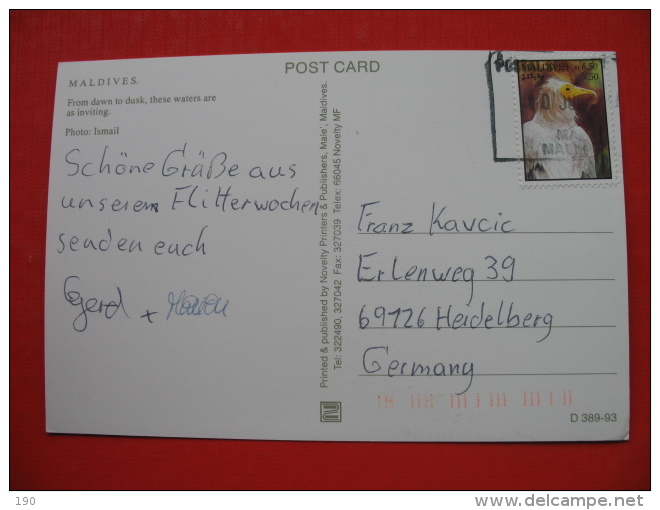 POST CARD
MALDIVES.
From dawn to dusk, these waters are
as inviting.
Photo: Ismail
Schöne Grüße aus
unserem Flitterwochen
senden euch
Gerd +
Printed & published by Novelty Printers & Publishers, Male', Maldives.
Tel: 322490, 327042 Fax: 327039 Telex: 66045 Novelty MF
MALDIVES Rf 6.50
Franz Kavcic
Erlenweg 39
69126 Heidelberg
Germany
D 389-93
190
delcampe.net